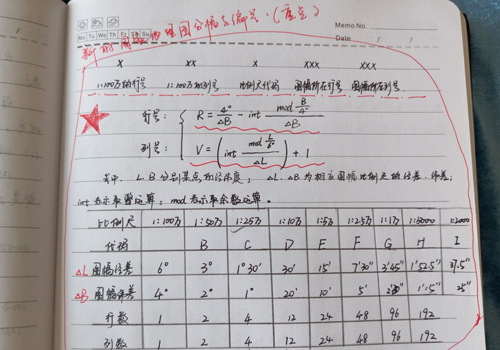 Memo No.
Mo Tu We Th Fr Sa Su
Date / /
新的国家 图分幅与编号.(重点)
X XX X XXX XXX
1:100万的行号 1:100万的列号 比例尺代码 图幅所在行号 图幅所在列号
行号: R = 4°/ΔB - int mod B/4° / ΔB
列号: V = (int mod L/6° / ΔL) + 1
式中, L.B分别某点的经纬度; ΔL、ΔB为相应图幅比例尺的经差、纬差;
int表示取整运算; mod表示取余数运算。
比例尺 1:100万 1:50万 1:25万 1:10万 1:5万 1:2.5万 1:1万 1:5000 1:2000
代码 B C D E F G H I
ΔL 图幅经差 6° 3° 1°30' 30' 15' 7'30" 3'45" 1'52.5" 37.5"
ΔB 图幅纬差 4° 2° 1° 20' 10' 5' 2'30" 1'15" 25"
行数 1 2 4 12 24 48 96 192
列数 1 2 4 12 24 48 96 192